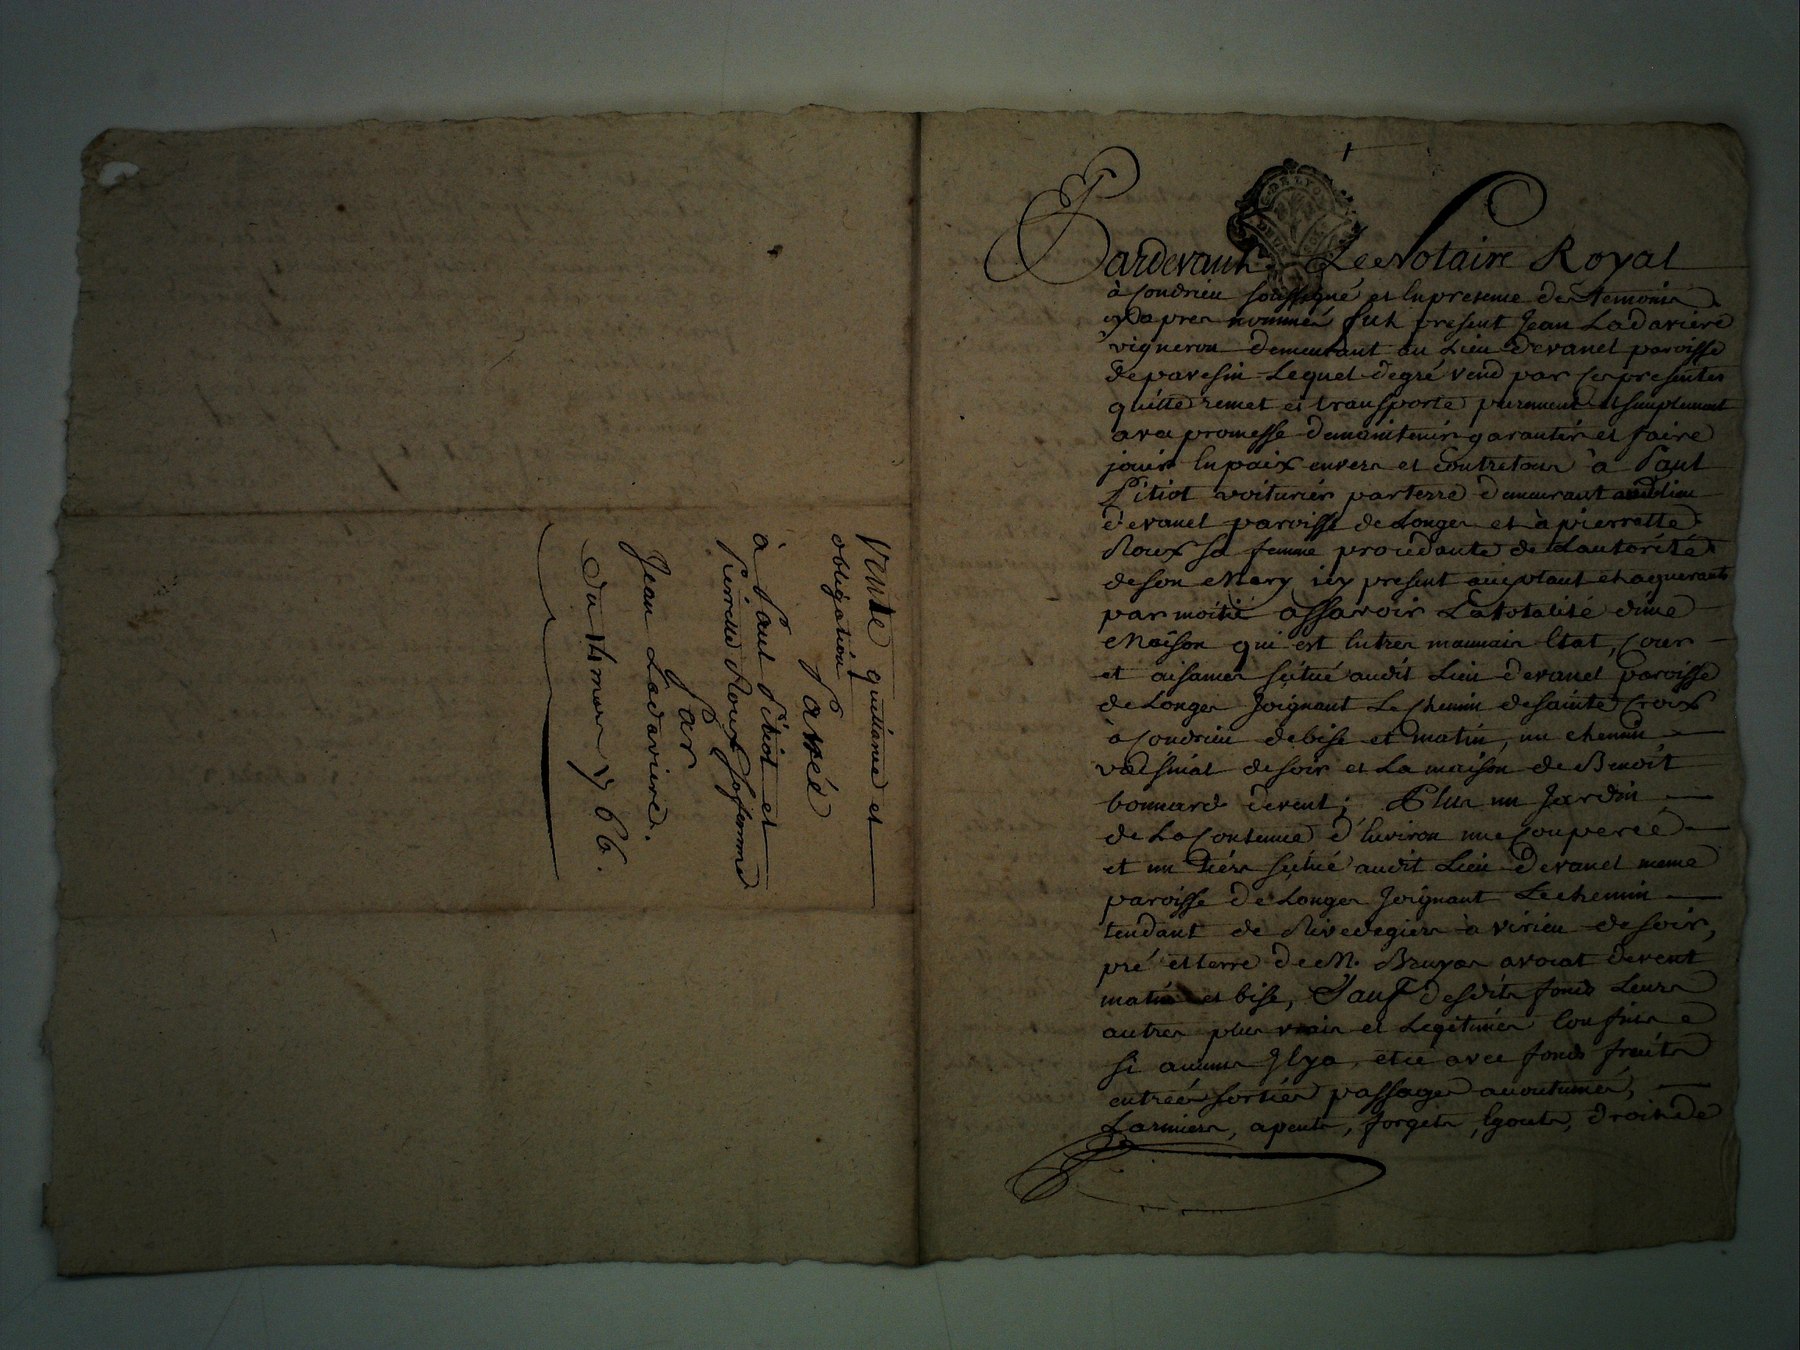 Vente quittance et
obligation
Passée
à Paul Pitiot et
Pierrette Roux sa femme
Par
Jean Ladavière.
Du 14 mars 1766.
Pardevant Le Notaire Royal
à Condrieu soussigné et en presence des temoins
cy après nommés fut present Jean Ladavière
vigneron demeurant au Lieu devanel paroisse
de pavesin Lequel de gré vend par ces presentes
quitte remet et transporte purement et simplement
avec promesse de maintenir garantir et faire
jouir en paix envers et contre tous à Paul
Pitiot voiturier par terre demeurant audit lieu
devanel paroisse de Longes et à pierrette
Roux sa femme procédante de L'autorité
de son Mary icy present acceptant et acquerants
par moitié assavoir La totalité d'une
Maison qui est en tres mauvais Etat, Cour
et aisances scitué audit Lieu devanel paroisse
de Longes Joignant Le Chemin de sainte Croix
à Condrieu de bise et matin, un chemin
voisinal de soir et La maison de Benoît
bonnard de vent; Plus un Jardin
de La Contenue d'Environ une Couperée
et un tiers scitué audit Lieu devanel meme
paroisse de Longes Joignant Le chemin
tendant de Rivedegiers à virieu de soir,
pré et terre de M. Bruyas avocat de vent
matin et bise, Sauf desdits fonds Leurs
autres plus vrais et Legitimes Confins
si aucuns Il y a, et ce avec fonds fruits
entrées sorties passages accoutumés,
Larmiers, apents, forgets, Egouts, droit de